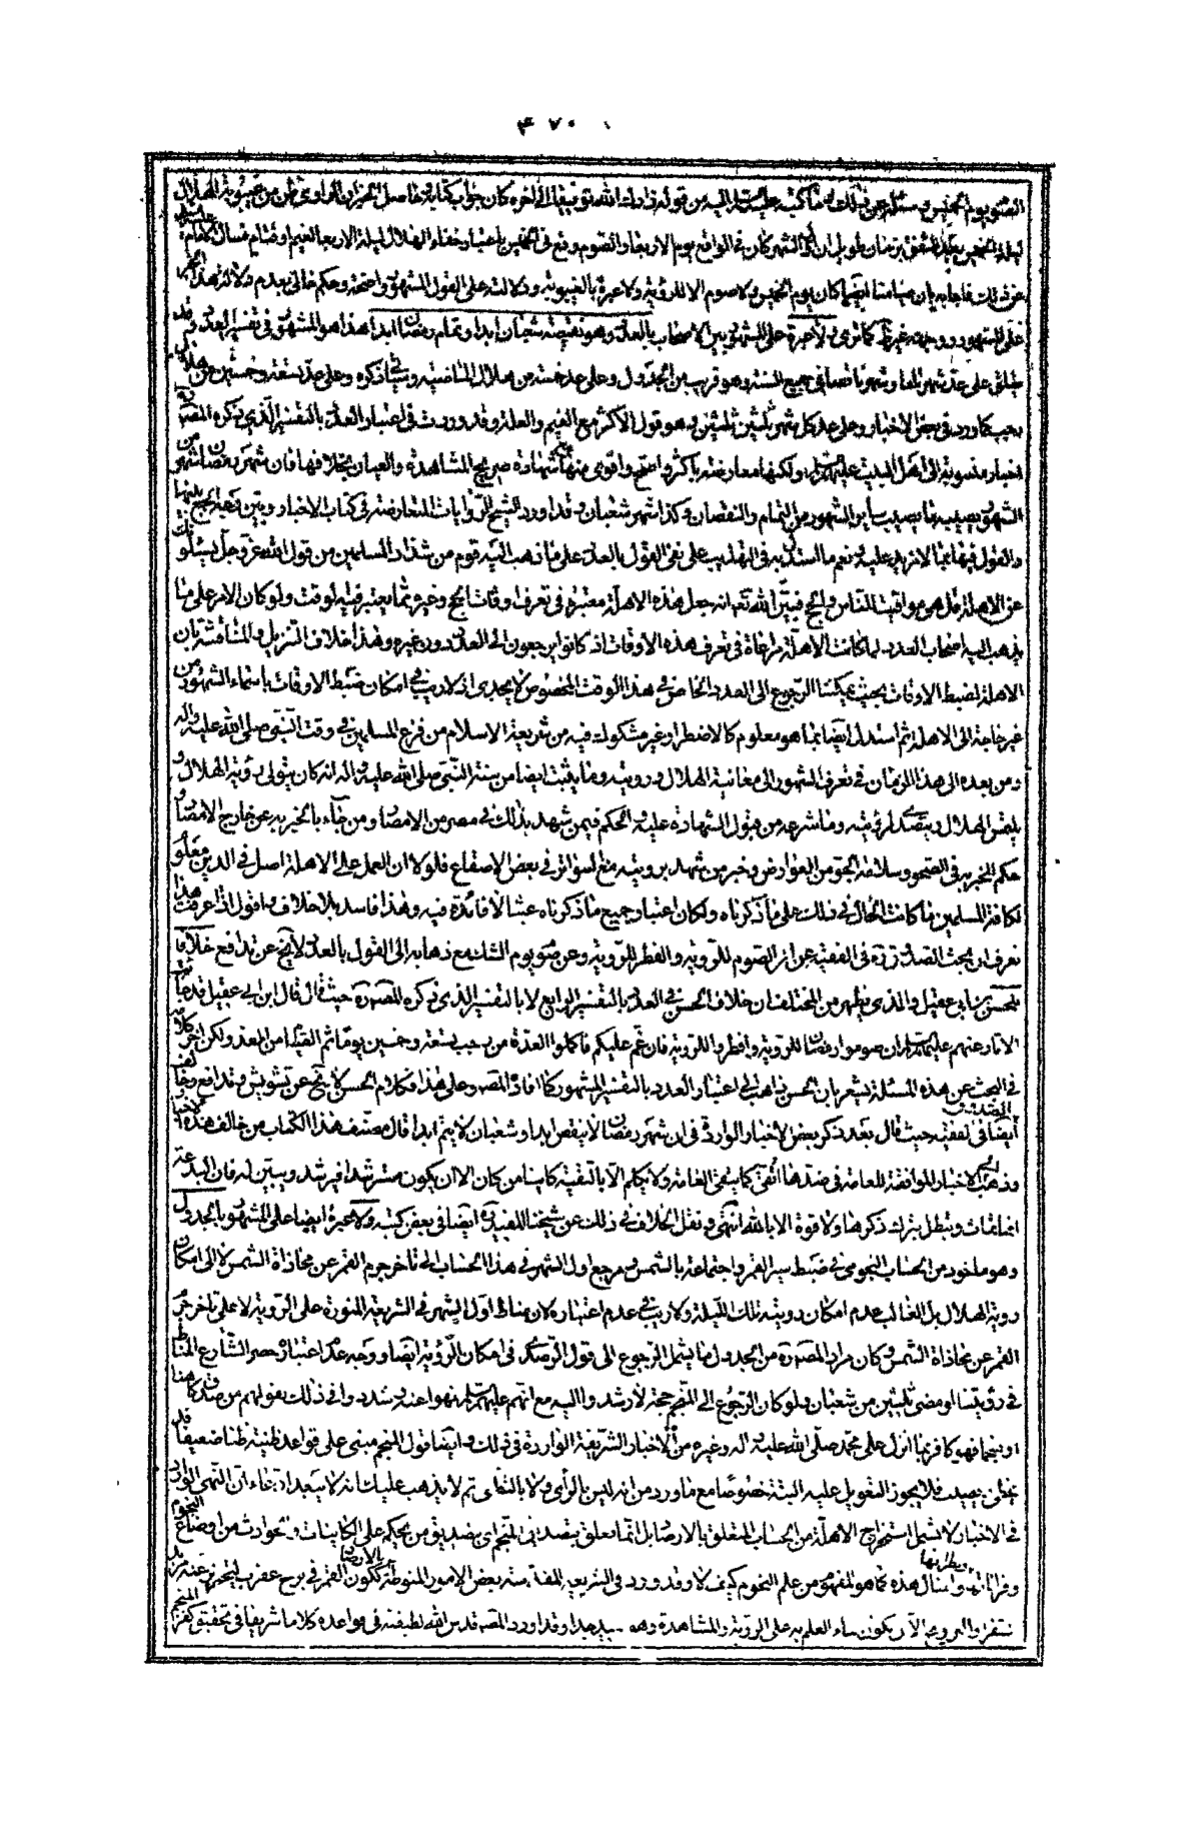 ٣٧٠
الصوم يوم الخميس و سئله عن ذلك و ما كتبه عليه السلام اليه من قوله زادك الله توفيقا الى اخره كان جواب كتابه و حاصل الراوى ظن من غيبوبة الهلال
ليلة الخميس بعد الشفق بزمان طويل ان الشهر كان فى الواقع يوم الاربعاء و الصوم وقع فى الخميس باعتبار خفاء الهلال ليلة الاربعاء للغيم او
عن ذلك فاجابه بان صيامنا ايضا كان يوم الخميس و لا صوم الا للرؤية و لا عبرة بالغيبوبة و دلالته على القول المشهور واضحة و حكم خالى بعدم دلالة هذا
على المشهور و وجهه غير ظ كما ترى و لا عبرة على المشهور بين الاصحاب بالعدد و هو نقيصة شعبان ابدا و تمام رمضان ابدا هذا هو المشهور فى تفسير العدد و قد
يطلق على عد شهر تاما و شهر ناقصا فى جميع السنة و هو قريب من الجدول و على عد خمسة من هلال الماضية و سيأتى ذكره و على عد تسعة و خمسين من هلال
رجب كما ورد فى بعض الاخبار و على عد كل شهر ثلثين ثلثين و هو قول الاكثر مع الغيم و العلة و قد وردت فى اعتبار العدد بالتفسير الذى ذكره المصنف
اخبار منسوبة الى اهل البيت عليهم السلام و لكنها معارضة باكثر و اصح و اقوى منها شهادة صريح المشاهدة و العيان بخلافها فان شهر رمضان شهر من
الشهور يصيبه ما يصيب سائر الشهور من التمام و النقصان و كذا شهر شعبان و قد اورد الشيخ الروايات المتعارضة فى كتاب الاخبار و بين وجه الجمع بينها
و القول فيها بما لا مزيد عليه نعم ما استدل به فى التهذيب على نفى القول بالعدد على ما ذهب اليه قوم من شذاذ المسلمين من قول الله عز و جل يسئلونك
عن الاهلة قل هى مواقيت للناس و الحج فبين الله تعم انه جعل هذه الاهلة معتبرة فى تعرف اوقات الحج و غيره مما يعتبر فيه الوقت و لو كان الامر على ما
يذهب اليه اصحاب العدد لما كانت الاهلة مراعاة فى تعرف هذه الاوقات اذ كانوا يرجعون الى العدد دون غيره و هذا خلاف التنزيل و المناقشة بان
الاهلة لضبط الاوقات بحيث يمكننا الرجوع الى العدد الخاص فى هذا الوقت المخصوص لا يجدى اذ لا ريب فى امكان ضبط الاوقات باسماء الشهور من
غير حاجة الى الاهلة ثم استدل ايضا بما هو معلوم كالاضطرار غير مشكوك فيه من شريعة الاسلام من فزع المسلمين فى وقت النبى صلى الله عليه و اله
و من بعده الى هذا الزمان فى تعرف الشهور الى معاينة الهلال و رويته و ما يثبت ايضا من سنة النبى صلى الله عليه و اله انه كان يتولى رؤية الهلال و
يلتمس الهلال و يتصدى لرؤيته و ما شرعه من قبول الشهادة عليه و الحكم فيمن شهد بذلك فى مصر من الامصار و من جاء بالخبر به عن خارج الامصار و
حكم الخبر به فى الصحو و سلامة الجو من العوارض و خبر من شهد برويته مع السواتر فى بعض الاصقاع فلولا ان العمل على الاهلة اصل فى الدين معلوم
لكافة المسلمين ما كانت الحال فى ذلك على ما ذكرناه و لكان اعتبار جميع ما ذكرناه عبثا لا فائدة فيه و هذا فاسد بلا خلاف و اقول اذا عرفت هذا
تعرف ان بحث الصدوق ره فى الفقيه عن ان الصوم للرؤية و الفطر للرؤية و عن صوم يوم الشك مع ذهابه الى القول بالعدد لا يخ عن تدافع خلافا
للحسن بن ابى عقيل و الذى يظهر من المختلف ان خلاف الحسن فى العدد بالتفسير الرابع لا بالتفسير الذى ذكره المصنف ره حيث قال قال ابن ابى عقيل قد جائت
الاثار عنهم عليهم السلام ان صوموا رمضان للرؤية و افطروا للرؤية فان غم عليكم فاكملوا العدة من رجب تسعة و خمسين يوما ثم الصيام من الغد و لكن اخر كلامه
فى البحث عن هذه المسئلة يشعر بان الحسن ذاهب الى اعتبار العدد بالتفسير المشهور كما افاده المصنف و على هذا فكلام الحسن لا يخ عن تشويش و تدافع و خالف
الصدوق
ايضا فى الفقيه حيث قال بعد ذكر بعض الاخبار الواردة فى ان شهر رمضان لا ينقص ابدا و شعبان لا يتم ابدا قال مصنف هذا الكتاب من خالف هذه الاخبار
و ذهب الى الاخبار الموافقة للعامة فى ضدها اتقى كما يتقى العامة و لا يكلم الا بالتقية كاينا من كان الا ان يكون مسترشدا فيرشد و يبين له فان البدعة
انما تمات و تبطل بترك ذكرها و لا قوة الا بالله انتهى و نقل الخلاف فى ذلك عن شيخنا المفيد ره ايضا فى بعض كتبه و لا عبرة ايضا على المشهور بالجدول
و هو ماخوذ من الحساب النجومى فى ضبط سير القمر و اجتماعه بالشمس و مرجع اول الشهر فى هذا الحساب الى تاخر جرم القمر عن محاذاة الشمس لا الى امكان
روية الهلال بل الغالب عدم امكان رويته تلك الليلة و لا ريب فى عدم اعتباره لان مناط اول الشهر فى الشريعة المنورة على الروية لا على تاخر جرم
القمر عن محاذاة الشمس و كان مراد المصنف ره من الجدول ما يشمل الرجوع الى قول الرصدى فى امكان الرؤية ايضا و وجه عدم اعتباره حصر الشارع المناط
فى رؤيتنا او مضى ثلثين من شعبان و لو كان الرجوع الى المنجم حجة لارشدوا اليه مع انهم عليهم السلام نهوا عنه و شددوا فى ذلك بقولهم من صدق كاهنا
او منجما فهو كافر بما انزل على محمد صلى الله عليه و اله و غيره من الاخبار الشريفة الواردة فى ذلك و ايضا قول المنجم مبنى على قواعد ظنية ظنا ضعيفا قد
يخطى و يصيب فلا يجوز التعويل عليه البتة خصوصا مع ما ورد من ان الدين بالراى و لا بالتظنى ثم لا يذهب عليك انه لا يبعد ادعاء ان النهى الوارد
فى الاخبار لا يشمل استخراج الاهلة من الحساب المتعلق بالارصاد بل انما تعلق بتصديق المنجم اى تصديق من يحكم على الكاينات و الحوادث من اوضاع النجوم
و قراناتها و نظراتها و امثال هذه كما هو المفهوم من علم النجوم كيف لا و قد ورد فى الشريعة المقدسة بعض الامور المنوطة بالارصاد ككون القمر فى برج عقرب ليتحرز عنه
الا ان يكون بناء العلم به على الروية و المشاهدة و هو بعيد جدا و قد اورد المصنف قدس الله لطيفه فى قواعده كلاما شريفا فى تحقيق كفر المنجم